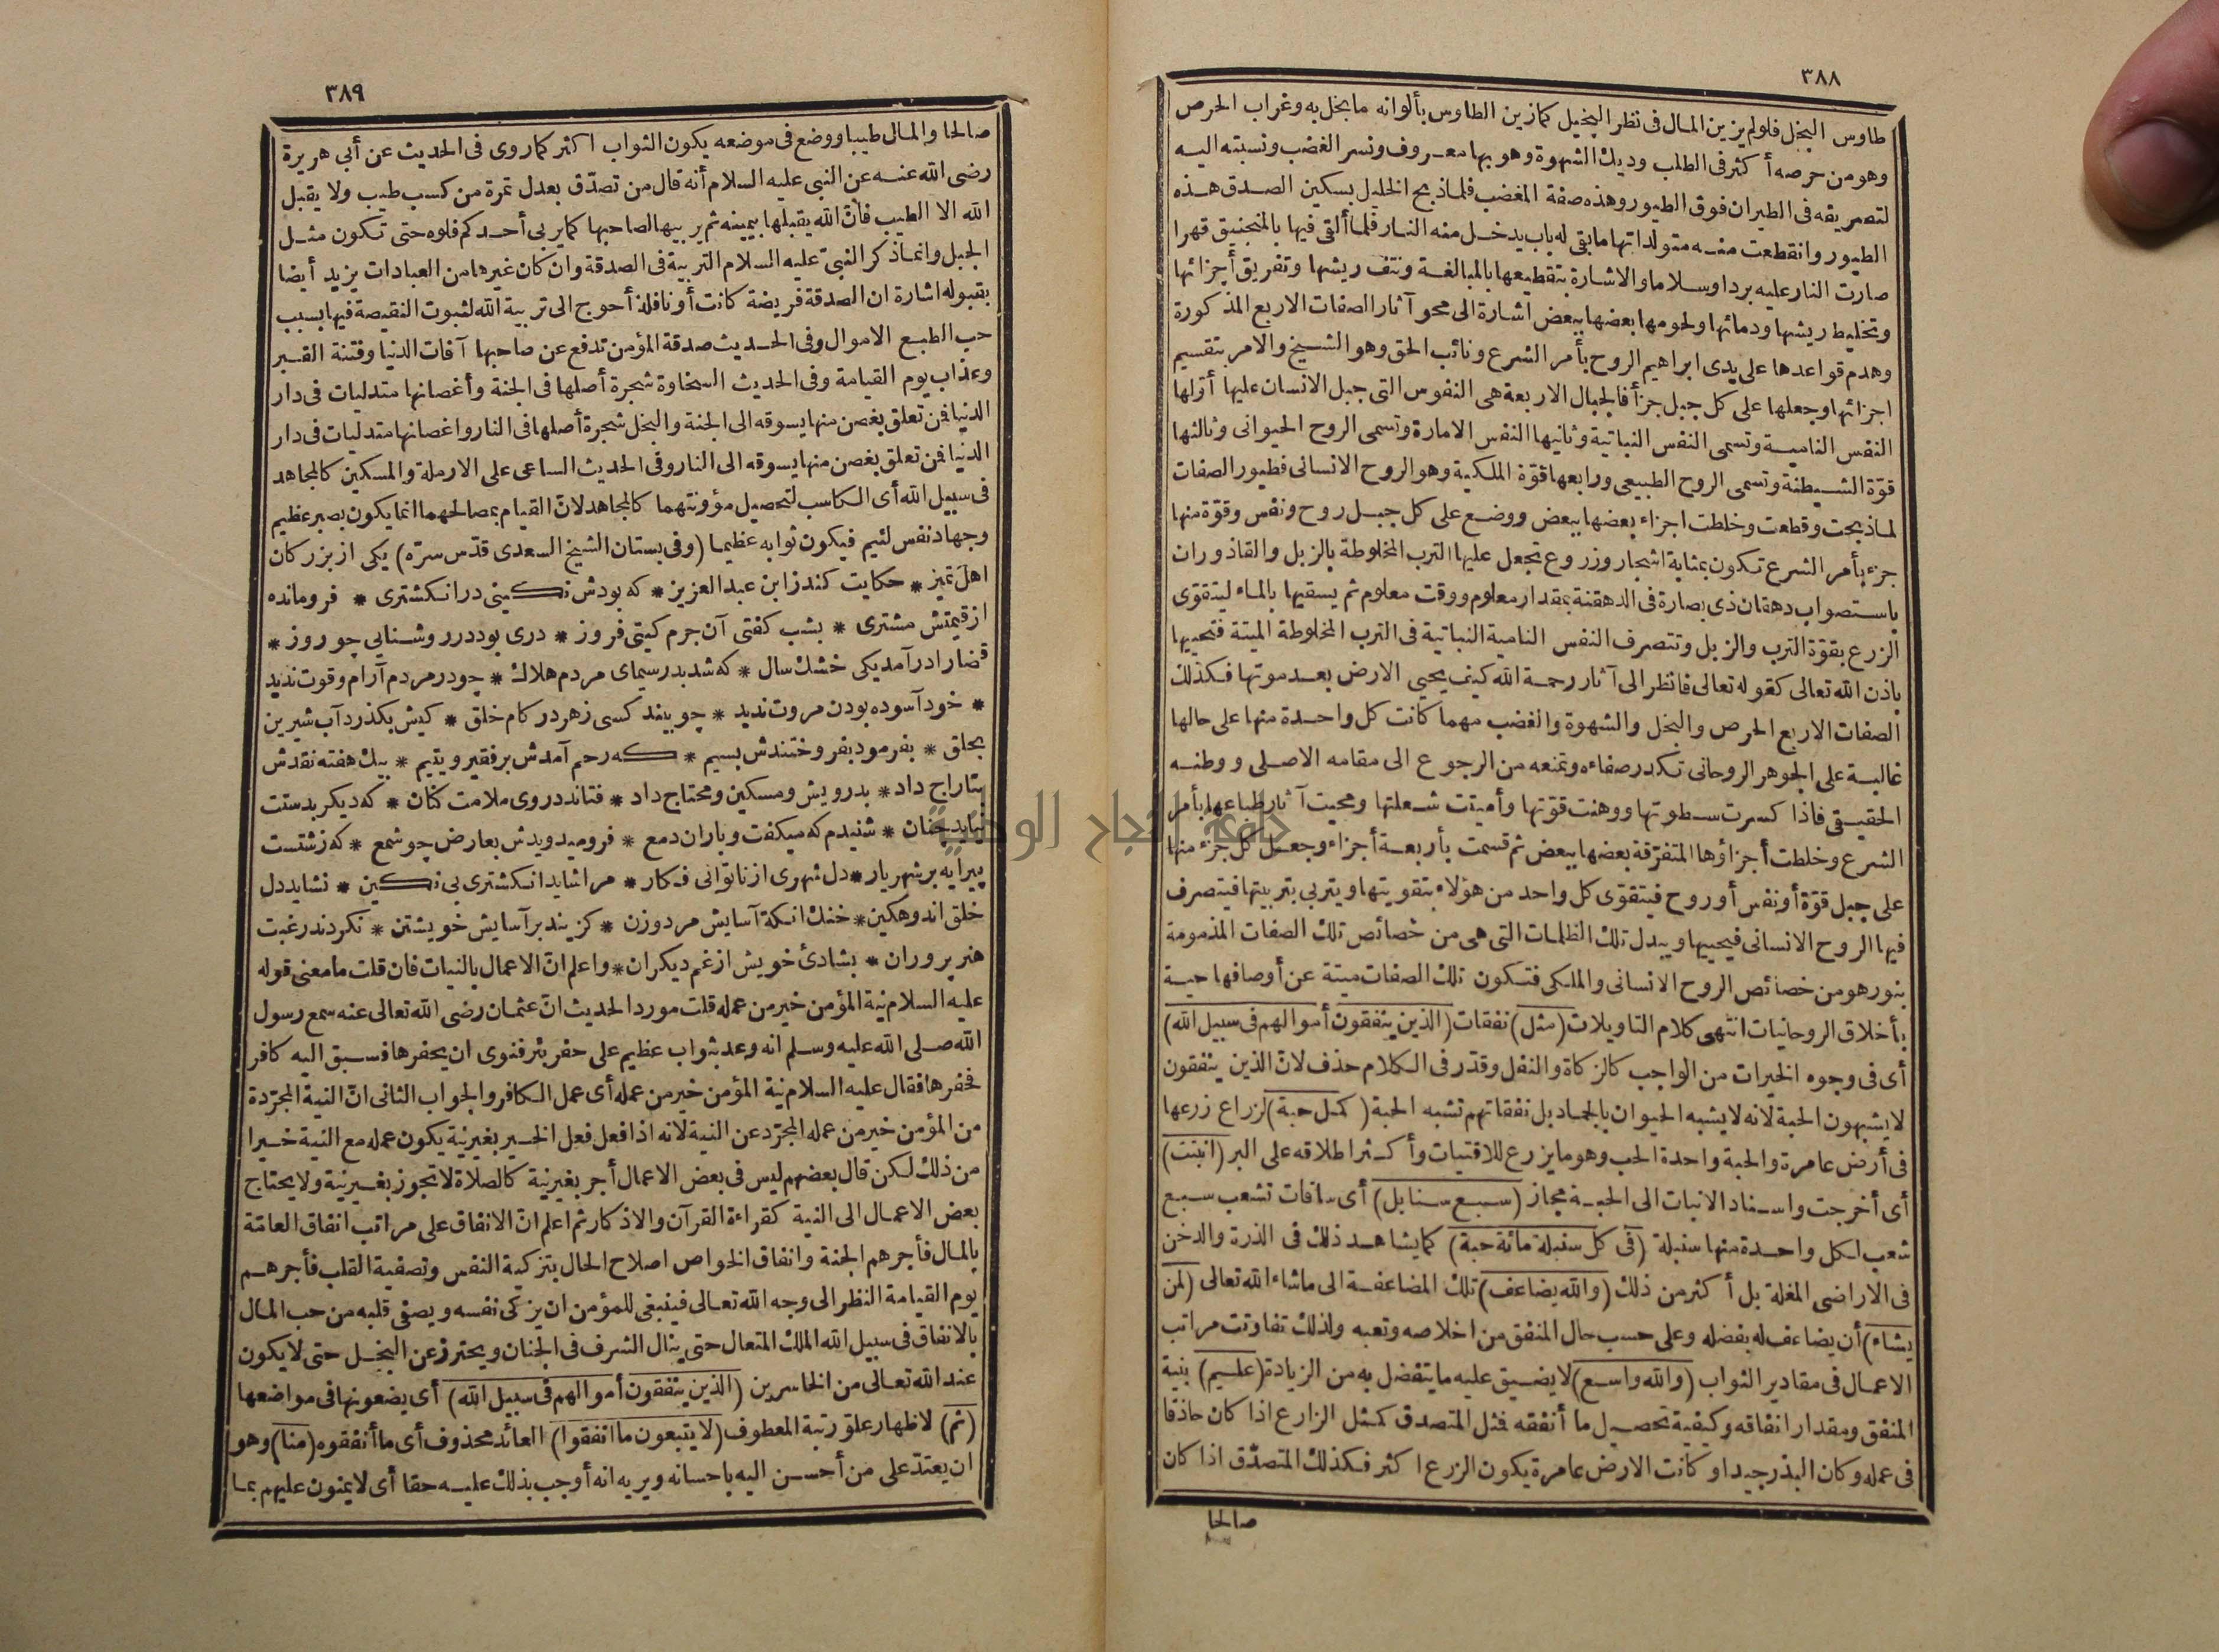 ٣٨٨
طاوس البخل فلولم يزين المال فى نظر البخيل كمازين الطاوس بألوانه مابخل به وغراب الحرص
وهو من حرصه أكثر فى الطلب وديك الشهوة وهو بها معروف ونسر الغضب ونسبته اليه
لتصريفه فى الطيران فوق الطيور وهذه صفة المغضب فلماذبح الخليل بسكين الصدق هذه
الطيور وانقطعت منه متولداتها مابقى له باب يدخل منه النار فلما ألقى فيها بالمنجنيق قهرا
صارت النار عليه بردا وسلاما والاشارة بتقطيعها بالمبالغة ونتف ريشها وتفريق أجزائها
وتخليط ريشها ودمائها ولحومها بعضها ببعض اشارة الى محو آثار الصفات الاربع المذكورة
وهدم قواعدها على يدى ابراهيم الروح بأمر الشرع ونائب الحق وهو الشيخ والامر بتقسيم
اجزائها وجعلها على كل جبل جزأ فالجبال الاربعة هى النفوس التى جبل الانسان عليها أولها
النفس النامية وتسمى النفس النباتية وثانيها النفس الامارة وتسمى الروح الحيوانى وثالثها
قوّة الشيطنة وتسمى الروح الطبيعى ورابعها قوّة الملكية وهو الروح الانسانى فطيور الصفات
لماذبحت وقطعت وخلطت اجزاء بعضها ببعض ووضع على كل جبل روح ونفس وقوّة منها
جزء بأمر الشرع تكون بمثابة اشجار وزروع تجعل عليها الترب المخلوطة بالزبل والقاذورات
باستصواب دهقان ذى بصارة فى الدهقنة بمقدار معلوم ووقت معلوم ثم يسقيها بالماء ليتقوى
الزرع بقوّة الترب والزبل وتتصرف النفس النامية النباتية فى الترب المخلوطة الميتة فتحييها
باذن الله تعالى كقوله تعالى فانظر الى آثار رحمة الله كيف يحيى الارض بعد موتها فكذلك
الصفات الاربع الحرص والبخل والشهوة والغضب مهما كانت كل واحدة منها على حالها
غالبة على الجوهر الروحانى تكدر صفاءه وتمنعه من الرجوع الى مقامه الاصلى ووطنه
الحقيقى فاذا كسرت سطوتها ووهنت قوّتها وأميتت شعلتها ومحيت آثار طباعها بأمر
الشرع وخلطت أجزاؤها المتفرّقة بعضها ببعض ثم قسمت بأربعة أجزاء وجعل كل جزء منها
على جبل قوّة أو نفس أو روح فيتقوى كل واحد من هؤلاء بتقويتها ويتربى بتربيتها فيتصرف
فيها الروح الانسانى فيحييها ويبدل تلك الظلمات التى هى من خصائص تلك الصفات المذمومة
بنور هو من خصائص الروح الانسانى والملكى فتكون تلك الصفات ميتة عن أوصافها حية
بأخلاق الروحانيات انتهى كلام التاويلات (مثل) نفقات (الذين ينفقون أموالهم فى سبيل الله)
أى فى وجوه الخيرات من الواجب كالزكاة والنفل وقدّر فى الكلام حذف لان الذين ينفقون
لايشبهون الحبة لانه لايشبه الحيوان بالجماد بل نفقاتهم تشبه الحبة (كمثل حبة) لزراع زرعها
فى أرض عامرة والحبة واحدة الحب وهو مايزرع للاقتيات وأكثر اطلاقه على البر (انبتت)
أى أخرجت واسناد الانبات الى الحبة مجاز (سبع سنابل) أى ساقات تشعب سبع
شعب لكل واحدة منها سنبلة (فى كل سنبلة مائة حبة) كما يشاهد ذلك فى الذرة والدخن
فى الاراضى المغلة بل أكثر من ذلك (والله يضاعف) تلك المضاعفة الى ماشاء الله تعالى (لمن
يشاء) أن يضاعف له بفضله وعلى حسب حال المنفق من اخلاصه وتعبه ولذلك تفاوتت مراتب
الاعمال فى مقادير الثواب (والله واسع) لايضيق عليه مايتفضل به من الزيادة (عليم) بنية
المنفق ومقدار انفاقه وكيفية تحصيل ما أنفقه فمثل المتصدق كمثل الزارع اذا كان حاذقا
فى عمله وكان البذر جيدا وكانت الارض عامرة يكون الزرع اكثر فكذلك المتصدّق اذا كان
صالحا
٣٨٩
صالحا والمال طيبا ووضع فى موضعه يكون الثواب اكثر كما روى فى الحديث عن أبى هريرة
رضى الله عنه عن النبى عليه السلام أنه قال من تصدّق بعدل تمرة من كسب طيب ولا يقبل
الله الا الطيب فانّ الله يقبلها بيمينه ثم يربيها لصاحبها كما يربى أحدكم فلوه حتى تكون مثل
الجبل وانماذكر النبىّ عليه السلام التربية فى الصدقة وان كان غيرها من العبادات يزيد أيضا
بقبوله اشارة ان الصدقة فريضة كانت أو نافلة أحوج الى تربية الله لثبوت النقيصة فيها بسبب
حب الطبع الاموال وفى الحديث صدقة المؤمن تدفع عن صاحبها آفات الدنيا وفتنة القبر
وعذاب يوم القيامة وفى الحديث السخاوة شجرة أصلها فى الجنة وأغصانها متدليات فى دار
الدنيا فمن تعلق بغصن منها يسوقه الى الجنة والبخل شجرة أصلها فى النار واغصانها متدليات فى دار
الدنيا فمن تعلق بغصن منها يسوقه الى النار وفى الحديث الساعى على الارملة والمسكين كالمجاهد
فى سبيل الله أى الكاسب لتحصيل مؤونتهما كالمجاهد لانّ القيام بمصالحهما انما يكون بصبر عظيم
وجهاد نفس لئيم فيكون ثوابه عظيما (وفى بستان الشيخ السعدى قدّس سرّه) يكى از بزركان
اهل تميز * حكايت كند زابن عبد العزيز * كه بودش نكينى در انكشترى * فرومانده
از قيمتش مشترى * بشب كفتى آن جرم كيتى فروز * درى بود در روشنايى چو روز *
قضارا در آمد يكى خشك سال * كه شد بدر سيماى مردم هلال * چو در مردم آرام وقوت نديد
* خود آسوده بودن مروت نديد * چو بيند كسى زهر در كام خلق * كيش بكذرد آب شيرين
بحلق * بفرمود بفروختندش بسيم * كه رحم آمدش بر فقير ويتيم * بيك هفته نقدش
بتاراج داد * بدرويش ومسكين ومحتاج داد * فتادند در وى ملامت كنان * كه ديكر بدستت
نيايد چنان * شنيدم كه ميكفت وباران دمع * فروميدويدش بعارض چو شمع * كه زشتست
پيرايه بر شهريار * دل شهرى از ناتوانى فكار * مرا شايد انكشترى بى نكين * نشايد دل
خلق اندوهكين * خنك انكه آسايش مرد وزن * كزيند بر آسايش خويشتن * نكردند رغبت
هنر پروران * بشادئ خويش از غم ديكران * واعلم انّ الاعمال بالنيات فان قلت ما معنى قوله
عليه السلام نية المؤمن خير من عمله قلت مورد الحديث انّ عثمان رضى الله تعالى عنه سمع رسول
الله صلى الله عليه وسلم انه وعد بثواب عظيم على حفر بئر فنوى ان يحفرها فسبق اليه كافر
فحفرها فقال عليه السلام نية المؤمن خير من عمله أى عمل الكافر والجواب الثانى انّ النية المجرّدة
من المؤمن خير من عمله المجرّد عن النية لانه اذا فعل فعل الخير بغير نية يكون عمله مع النية خيرا
من ذلك لكن قال بعضهم ليس فى بعض الاعمال أجر بغير نية كالصلاة لاتجوز بغير نية ولا يحتاج
بعض الاعمال الى النية كقراءة القرآن والاذكار ثم اعلم انّ الانفاق على مراتب انفاق العامّة
بالمال فأجرهم الجنة وانفاق الخواص اصلاح الحال بتزكية النفس وتصفية القلب فأجرهم
يوم القيامة النظر الى وجه الله تعالى فينبغى للمؤمن ان يزكى نفسه ويصفى قلبه من حب المال
بالانفاق فى سبيل الله الملك المتعال حتى ينال الشرف فى الجنان ويحترز عن البخل حتى لا يكون
عند الله تعالى من الخاسرين (الذين ينفقون أموالهم فى سبيل الله) أى يضعونها فى مواضعها
(ثم) لاظهار علوّ رتبة المعطوف (لايتبعون ماانفقوا) العائد محذوف أى ما أنفقوه (منا) وهو
ان يعتدّ على من أحسن اليه باحسانه ويريه انه أوجب بذلك عليه حقا أى لايمنون عليهم بما